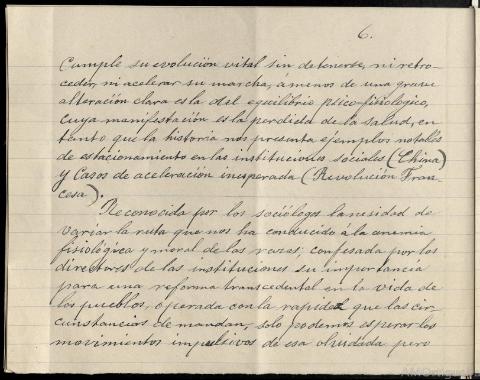 6.
Cumple su evolución vital sin detenerse, ni retro-
ceder, ni acelerar su marcha, á menos de una grave
alteración clara es la del equilibrio psico-fisiológico,
cuya manifestación es la perdida de la salud, en
tanto que la historia nos presenta ejemplos notables
de estacionamiento en las instituciones sociales (China)
y casos de aceleración inesperada (Revolución Fran-
cesa).
Reconocida por los sociólogos la nesidad de
variar la ruta que nos ha conducido á la anemia
fisiológica y moral de las razas; confesada por los
directores de las instituciones su importancia
para una reforma transcedental en la vida de
los pueblos, operada con la rapidez que las cir-
cunstancias demandan, solo podemos esperar los
movimientos impulsivos de esa olvidada pero